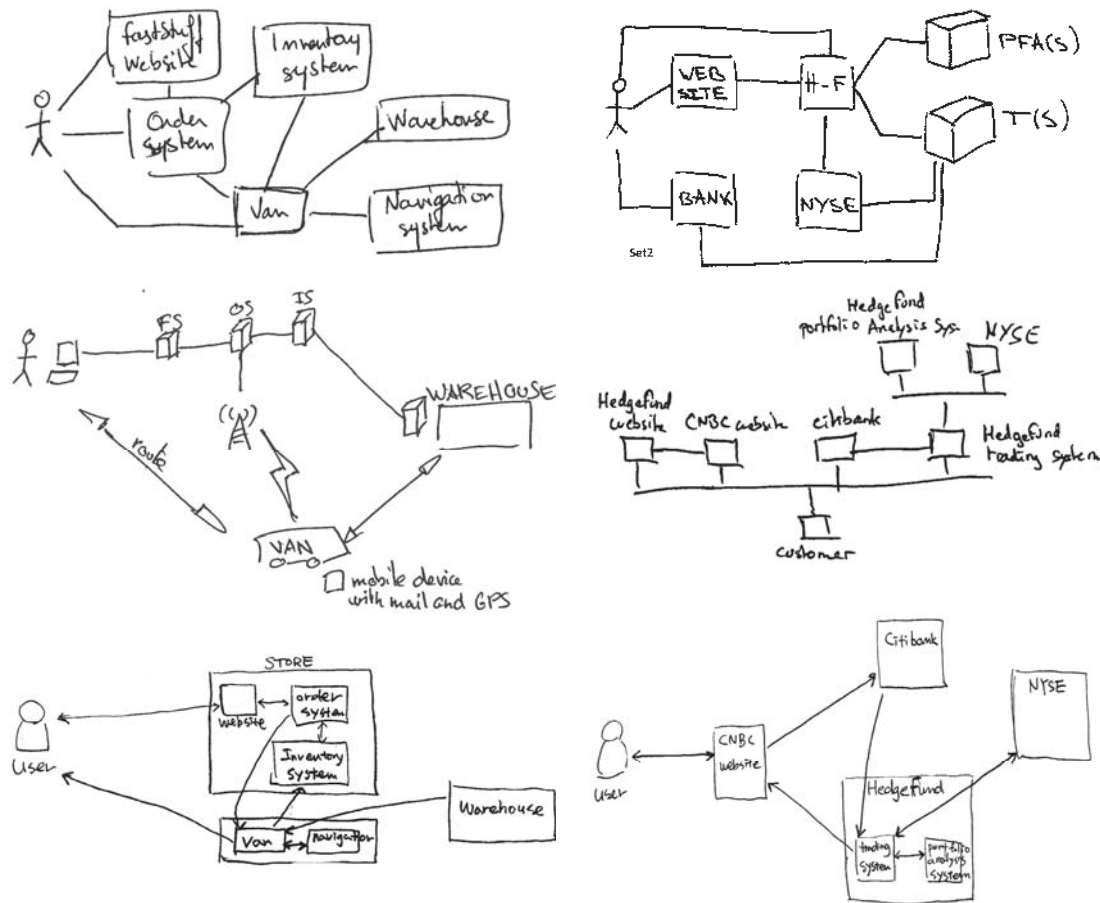 FastStuff
Website
Inventory
system
Order
system
Warehouse
Van
Navigation
system
WEB
SITE
H-F
PFA(S)
T(S)
BANK
NYSE
Set2
FS
OS
IS
WAREHOUSE
route
VAN
mobile device
with mail and GPS
Hedgefund
portfolio Analysis Sys.
NYSE
Hedgefund
website
CNBC website
citibank
Hedgefund
trading system
customer
STORE
website
order
system
Inventory
system
User
Van
navigation
Warehouse
Citibank
NYSE
CNBC
website
user
Hedgefund
trading
system
portfolio
analysis
system